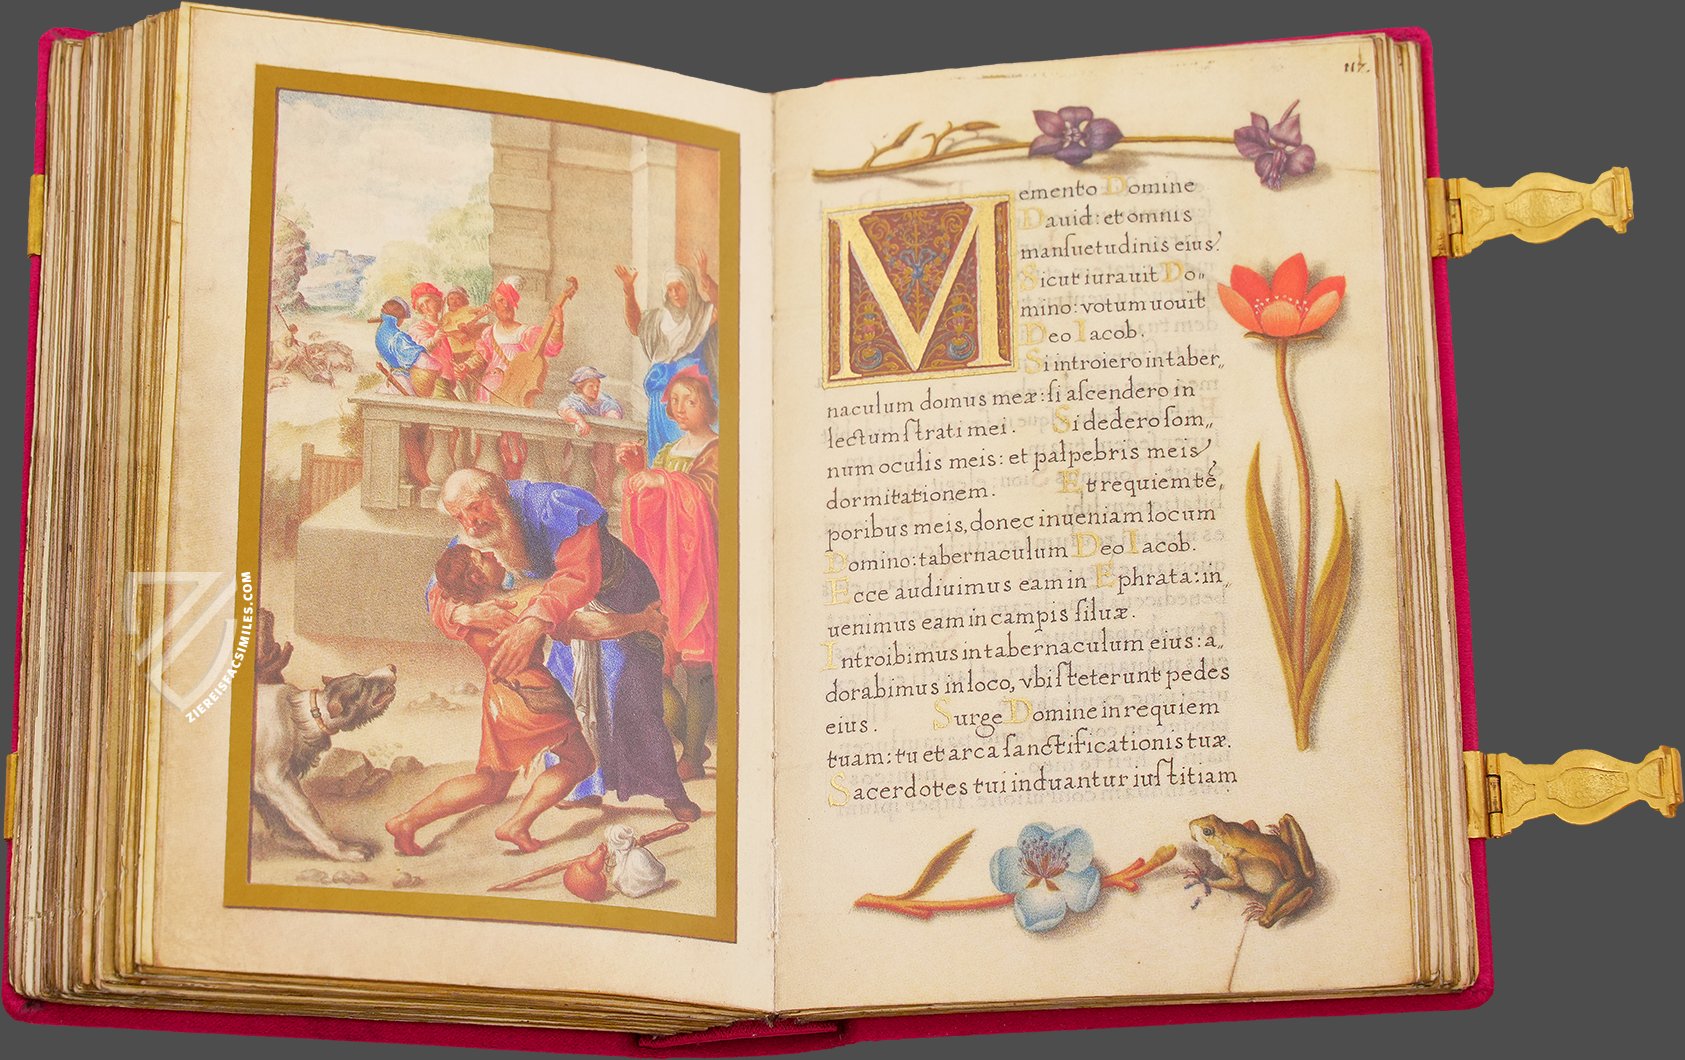 ZIEREISFACSIMILES.COM
117.
Memento Domine
Dauid: et omnis
manſuetudinis eius:
Sicut iurauit Do„
mino: votum uouit
Deo Iacob.
Si introiero in taber„
naculum domus meæ: ſi aſcendero in
lectum ſtrati mei. Si dedero ſom„
num oculis meis: et palpebris meis
dormitationem. Et requiem tē„
poribus meis, donec inueniam locum
Domino: tabernaculum Deo Iacob.
Ecce audiuimus eam in Ephrata: in„
uenimus eam in campis ſiluæ.
Introibimus in tabernaculum eius: a„
dorabimus in loco, vbi ſteterunt pedes
eius. Surge Domine in requiem
tuam: tu et arca ſanctificationis tuæ.
Sacerdotes tui induantur iuſtitiam